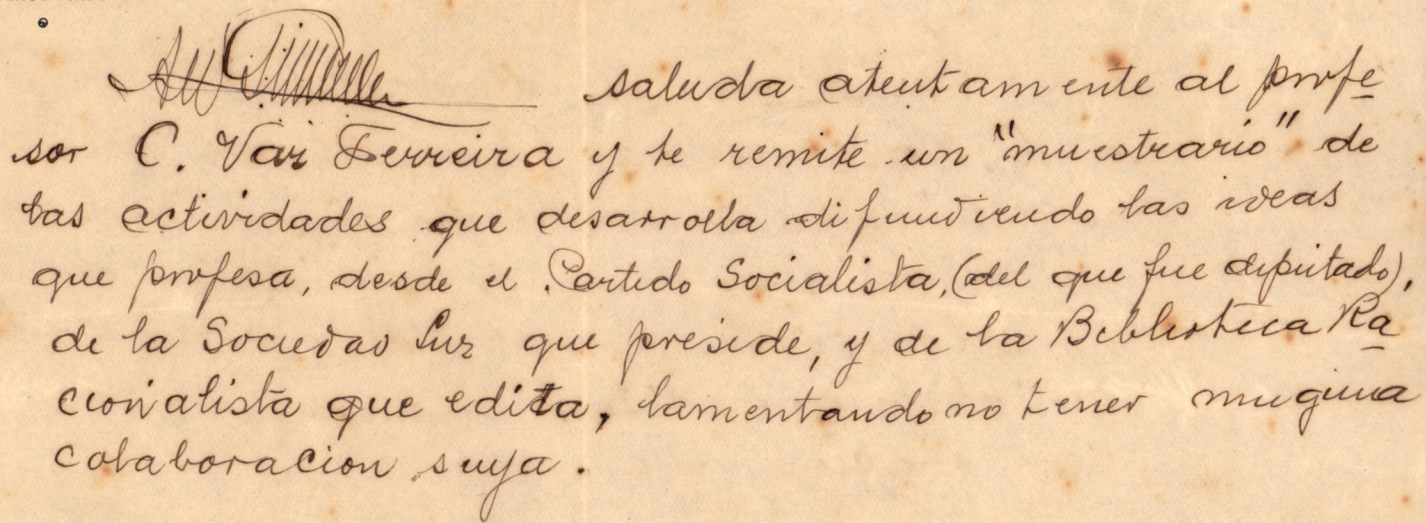 saluda atentamente al profe
sor C. Vaz Ferreira y le remite un "muestrario" de
las actividades que desarrolla difundiendo las ideas
que profesa, desde el Partido Socialista, (del que fue diputado),
de la Sociedad Luz que preside, y de la Biblioteca Ra
cionalista que edita, lamentando no tener ninguna
colaboracion suya.